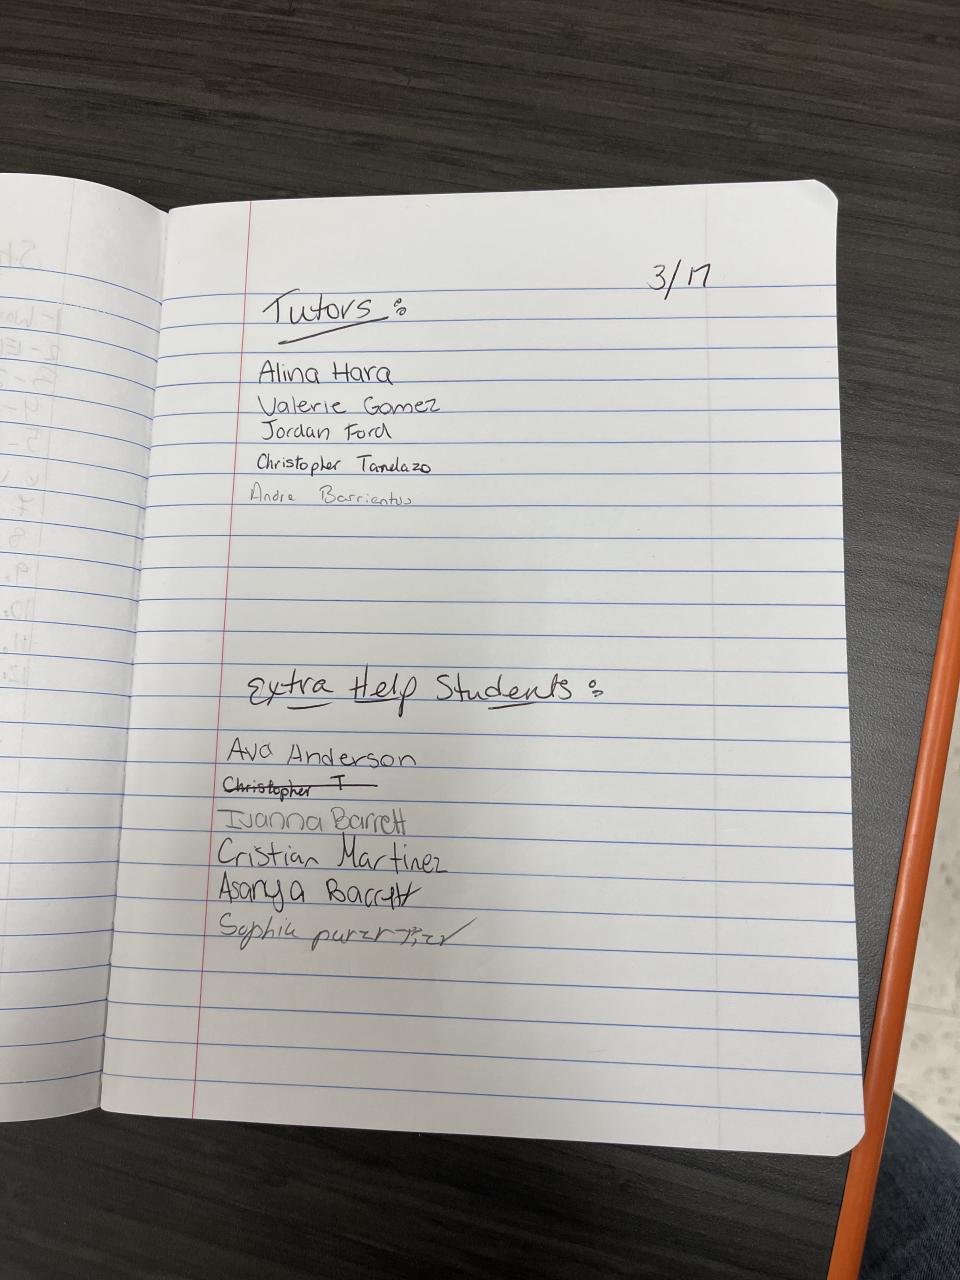 3/17
Tutors:
Alina Hara
Valerie Gomez
Jordan Ford
Christopher Tandazo
Andre Barrientos
Extra Help Students:
Ava Anderson
Christopher T
Ivanna Barrett
Cristian Martinez
Asanya Barrett
Sophia